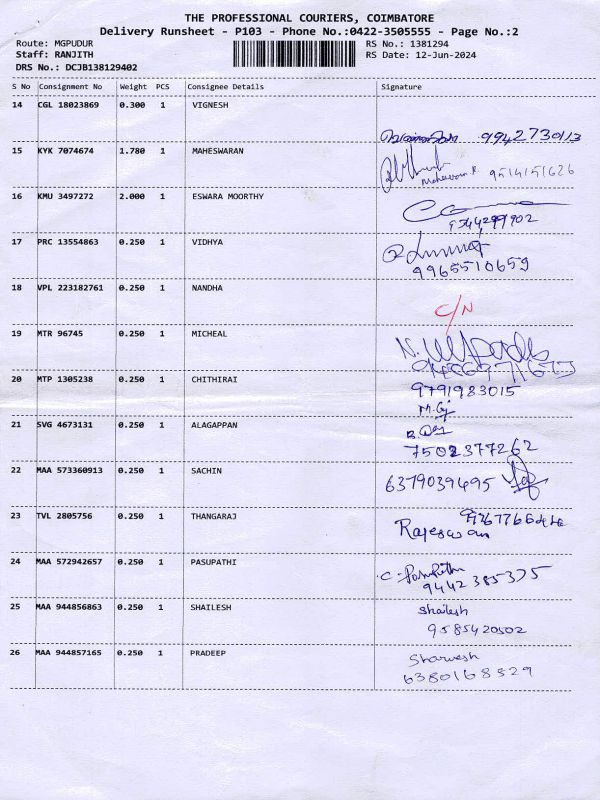 THE PROFESSIONAL COURIERS, COIMBATORE
Delivery Runsheet - P103 - Phone No.:0422-3505555 - Page No.:2
Route: MGPUDUR RS No.: 1381294
Staff: RANJITH RS Date: 12-Jun-2024
DRS No.: DCJB138129402
S No Consignment No Weight PCS Consignee Details Signature
14 CGL 18023869 0.300 1 VIGNESH
9942730113
15 KYK 7074674 1.780 1 MAHESWARAN
9514151626
16 KMU 3497272 2.000 1 ESWARA MOORTHY
17 PRC 13554863 0.250 1 VIDHYA
9965510659
18 VPL 223182761 0.250 1 NANDHA
C/N
19 MTR 96745 0.250 1 MICHEAL
20 MTP 1305238 0.250 1 CHITHIRAI
9791983015
21 SVG 4673131 0.250 1 ALAGAPPAN
7502377262
22 MAA 573360913 0.250 1 SACHIN
6379039495
23 TVL 2805756 0.250 1 THANGARAJ
Rajeswari
24 MAA 572942657 0.250 1 PASUPATHI
9442385375
25 MAA 944856863 0.250 1 SHAILESH
Shailesh
9585420502
26 MAA 944857165 0.250 1 PRADEEP
Sharvesh
6380168529